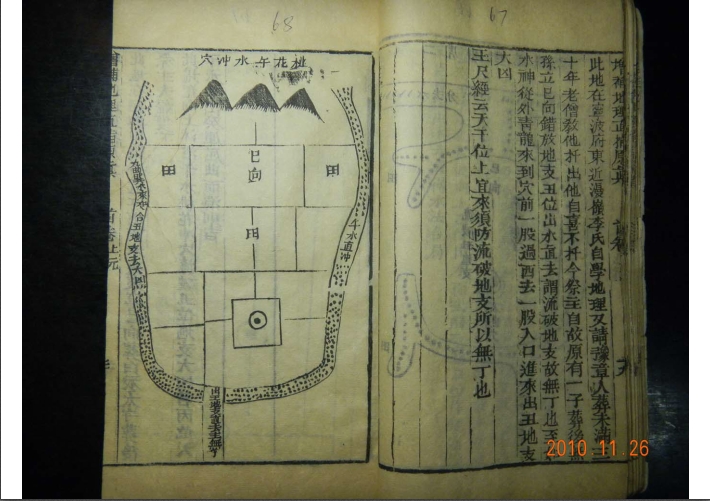 67
此地在寧波府東近漫嶺李氏自學地理又請豫章人葬未滿三
十年老僧教他扦出他自喜不扦今祭主自故原有一子葬後
孫立巳向錯放地支丑位出水直去謂流破地支故無丁也至
水神從外青龍來到穴前一股過西去一股入口進來出丑地支
大凶
玉尺經云天干位上宜來須防流破地支所以無丁也
68
桃花午水沖穴
巳向
田
田
田
午水直沖
首卷上元
2010.11.26